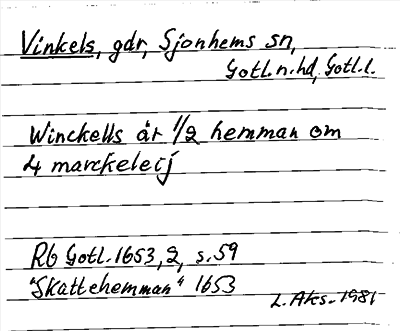 Vinkels, gdr, Sjonhems sn,
Gotl.n.hd, Gotl.l.
Winckells är 1/2 hemman om
4 marckeleij
Rb Gotl.1653,2, s.59
"Skattehemman" 1653
L.Aks. 1981